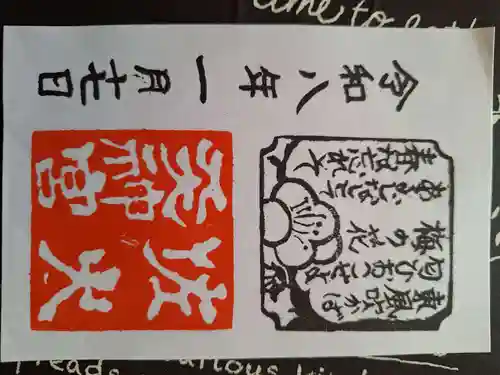 東風吹かば
匂ひおこせよ
梅の花
あるじなしとて
春な忘れそ
佐太
天神宮
令和八年一月十七日
time to